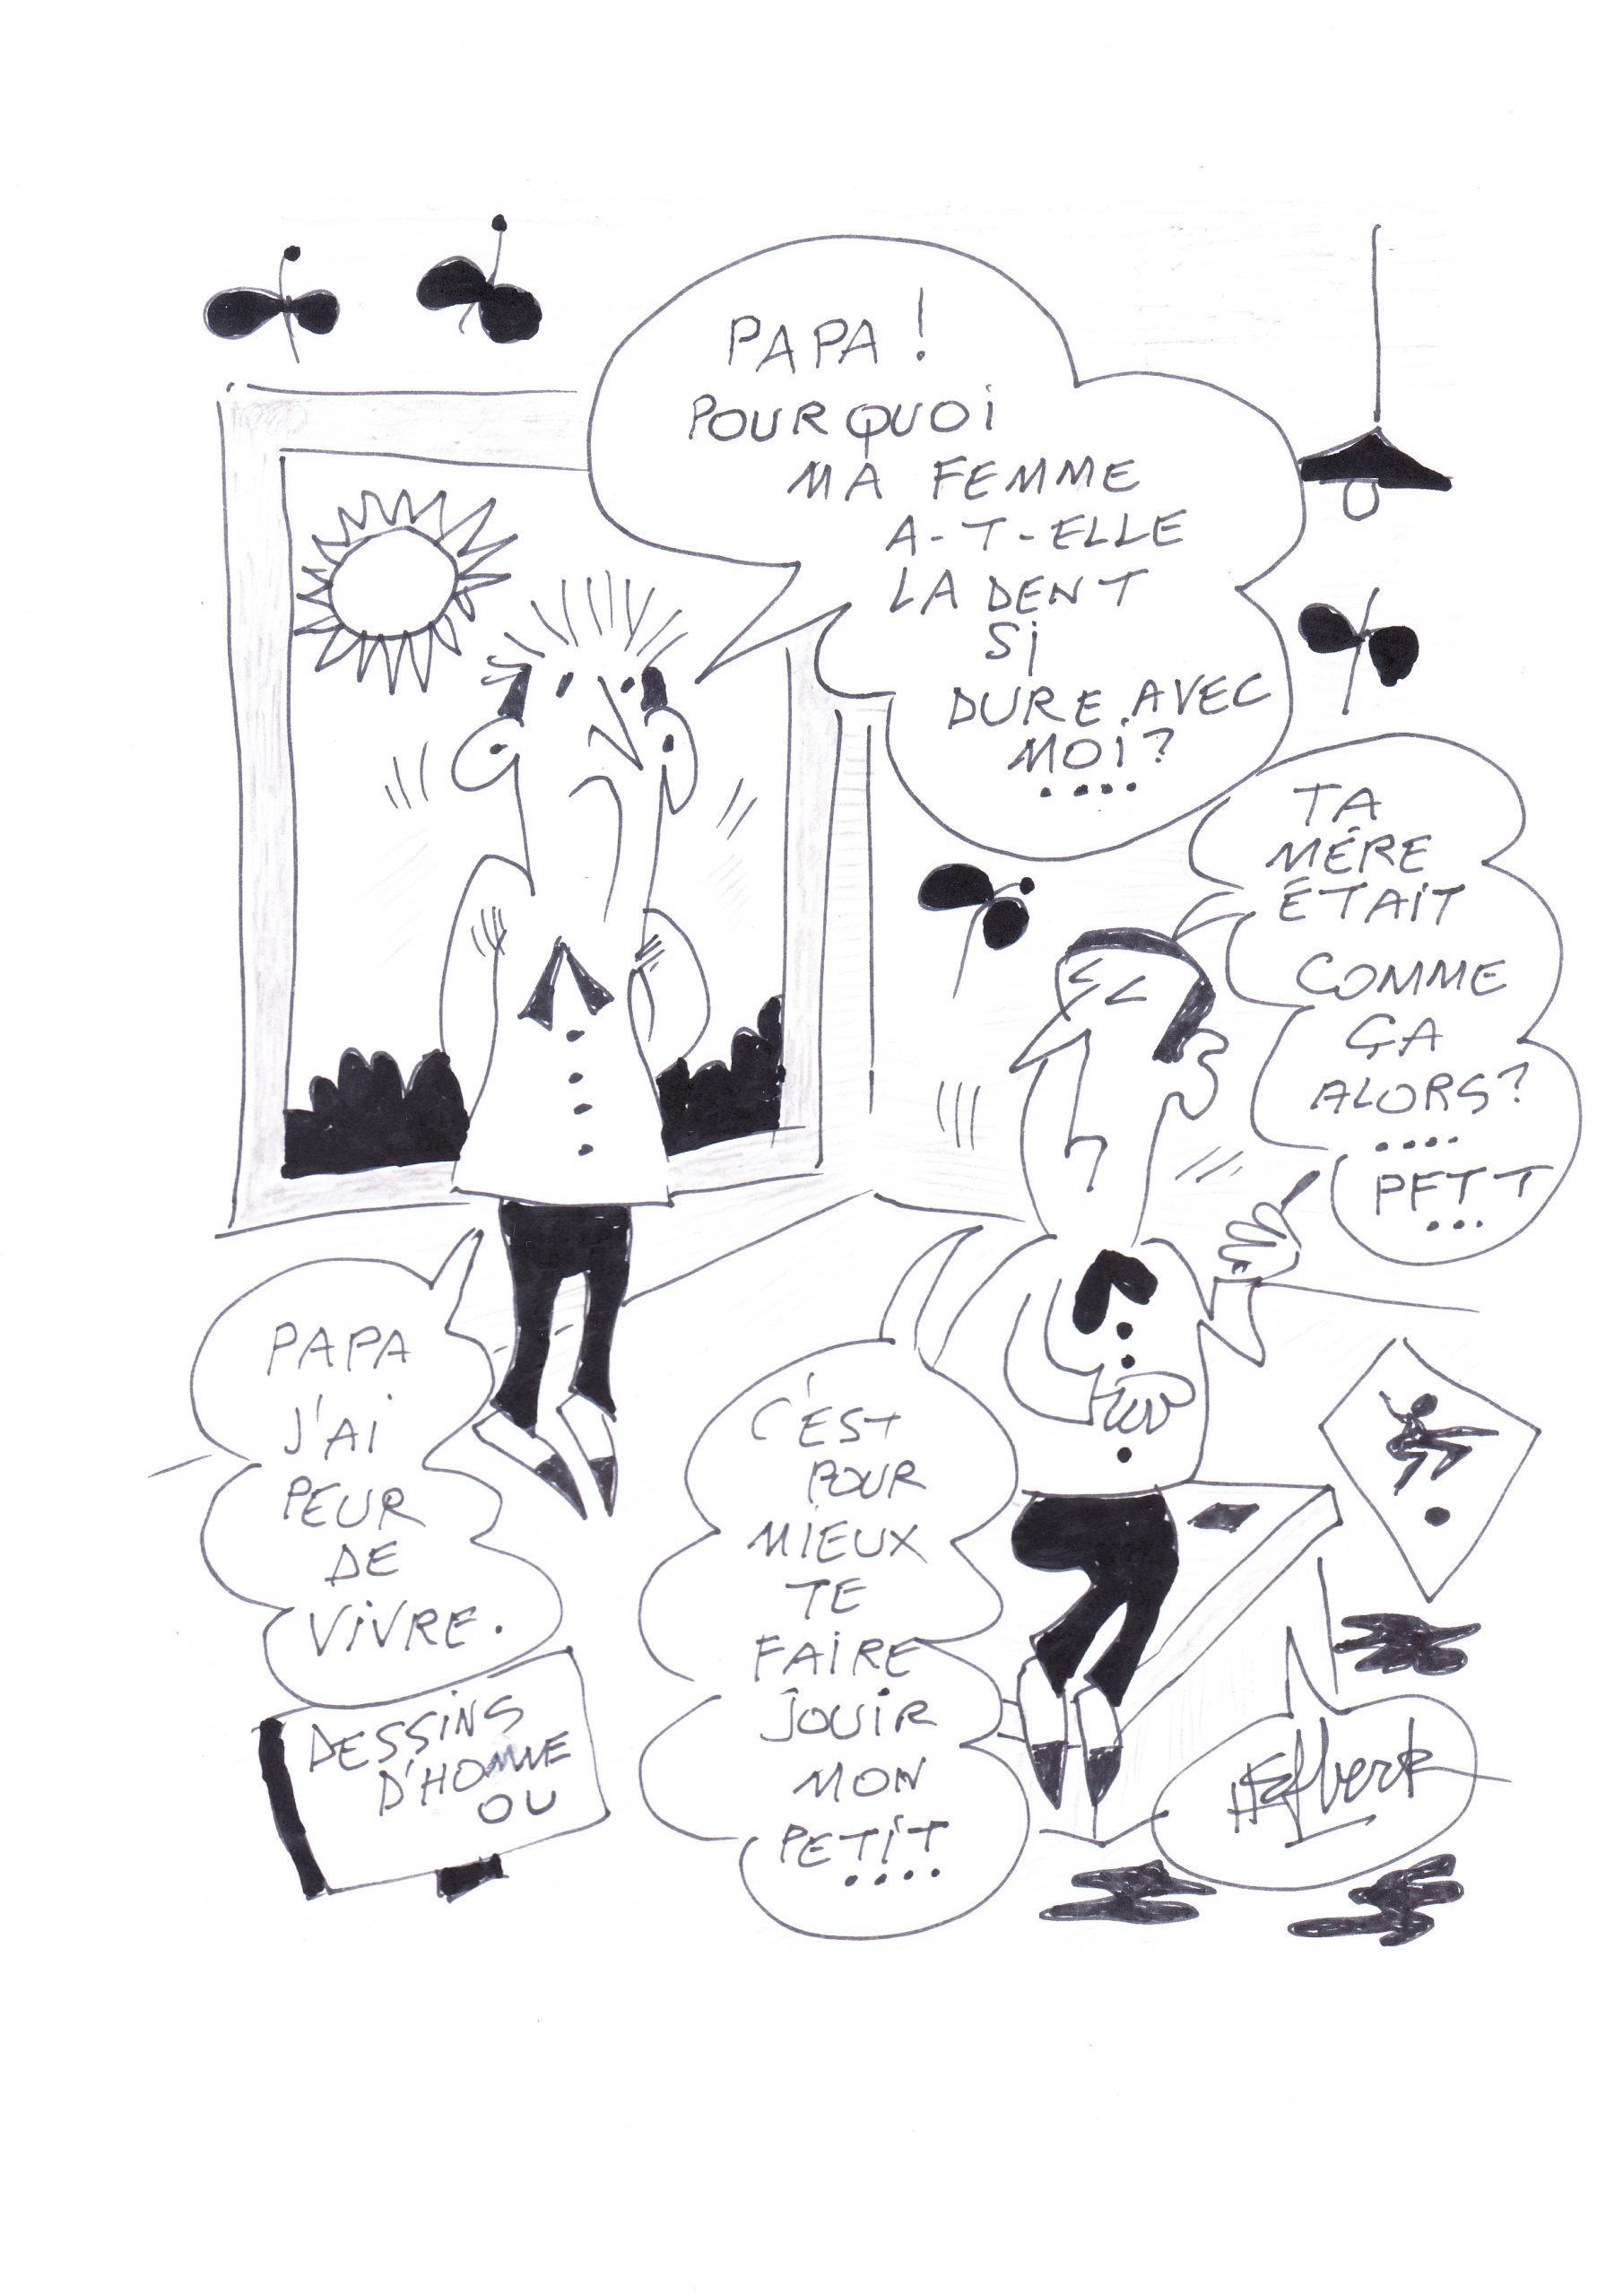 PAPA !
POURQUOI
MA FEMME
A-T-ELLE
LA DENT
Si
DURE AVEC
MOi ?
....
TA
MÉRE
ÉTAiT
COMME
ÇA
ALORS ?
....
PFTT
...
PAPA
J'Ai
PEUR
DE
ViVRE.
C'EST
POUR
MiEUX
TE
FAiRE
JOUiR
MON
PETiT
....
DESSiNS
D'HOMME
OU